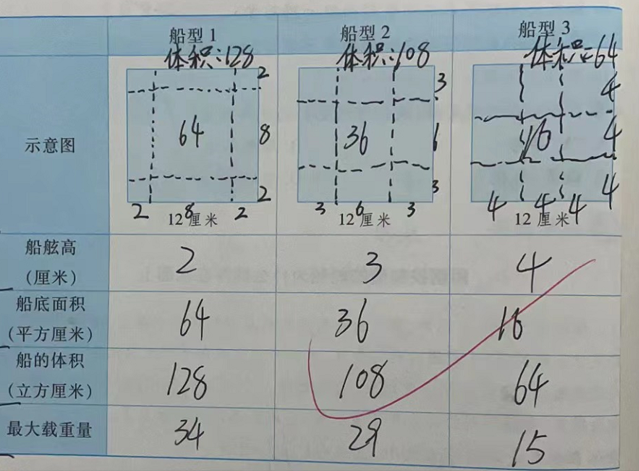 船型 1 船型 2 船型 3
体积:128 体积:108 体积:64
示意图
2 3 4
64 8 36 6 16 4
2 3 4
2 8 2 3 6 3 4 4 4
12 厘米 12 厘米 12 厘米
船舷高
(厘米) 2 3 4
船底面积
(平方厘米) 64 36 16
船的体积
(立方厘米) 128 108 64
最大载重量 34 29 15